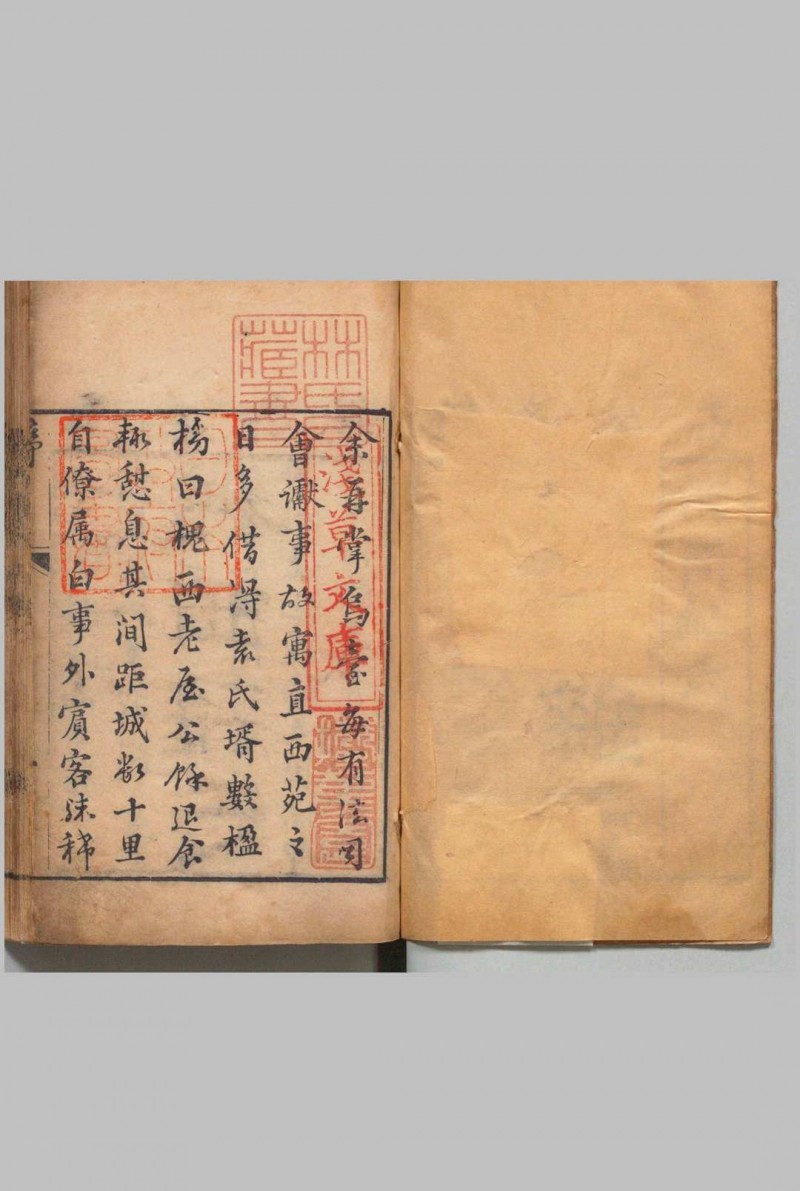 余再掌烏臺每有法司
會讞事故寓直西苑之
日多借得袁氏壻數楹
榜曰槐西老屋公餘退食
輒憩息其間距城數十里
自僚属白事外賓客殊稀
序
林氏
藏書
淺草文庫